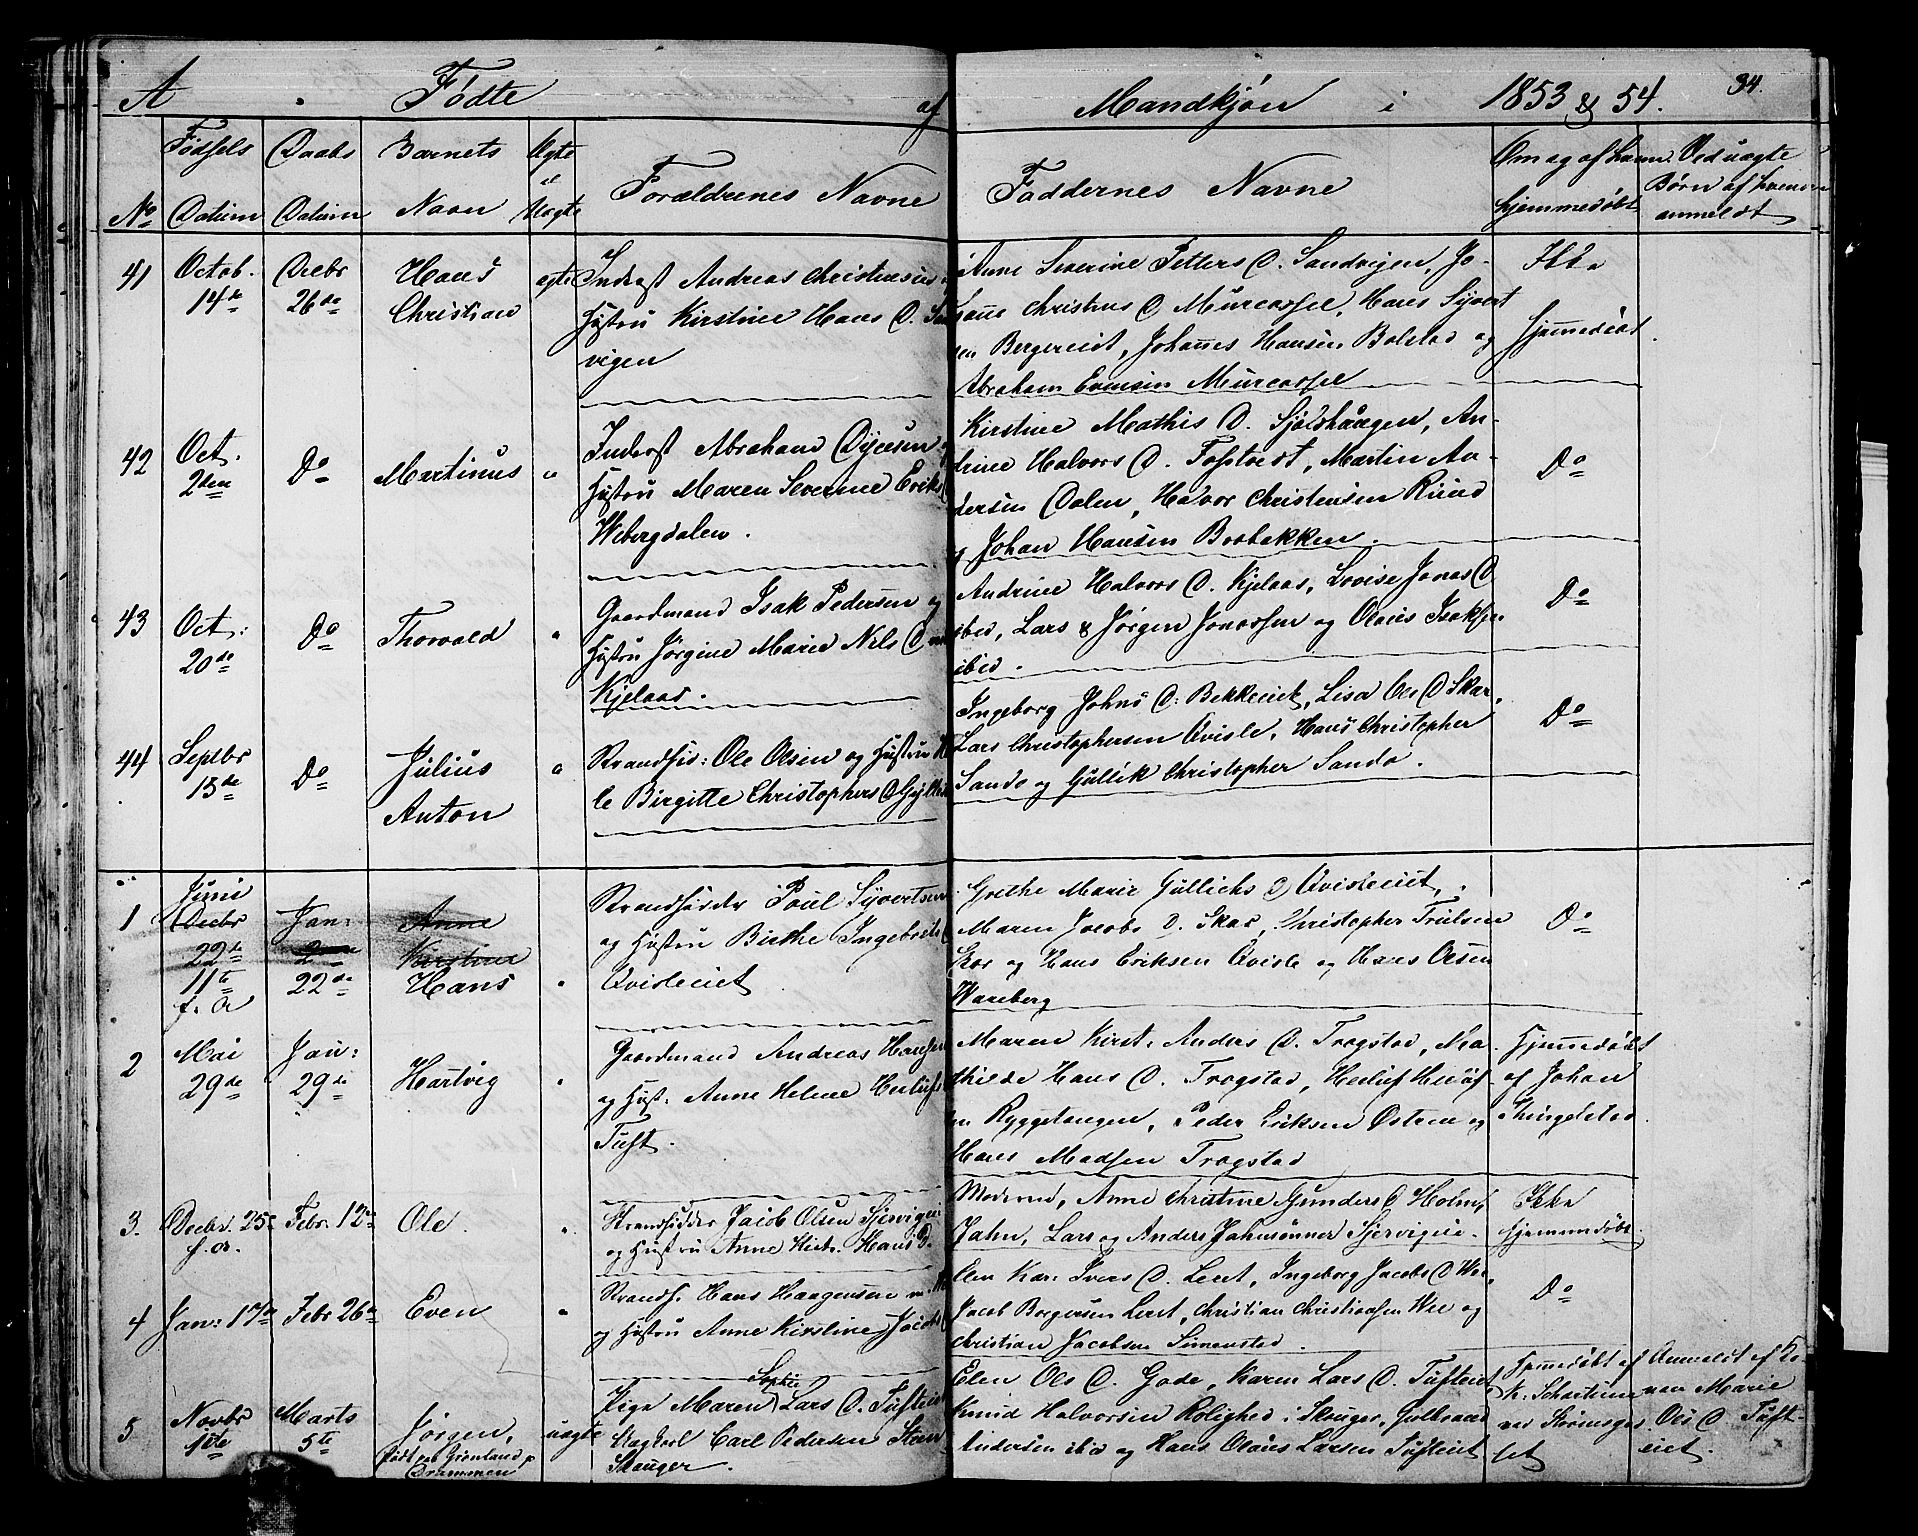 A. Fødte af Mandkjøn i 1853 & 54. 34.
No
Fødsels Datum
Daabs Datum
Barnets Navn
Ægte el Uægte
Forældrenes Navne
Faddernes Navne
Om og af hvem hjemmedøbt
Ved uægte Børn af hvem anmeldt
41
Octob. 14de
Decbr 26de
Hans
Christian
ægte
Inderst Andreas Christensen
Hustru Kirstine Hans D. San
vigen
Anne Severine Petters D. Sandvigen, Jo-
hanne Christens D
Bergereiet, Johannes Hansen Bolstad og
Abraham Evensen
Ikke
hjemmedøbt.
42
Oct. 2den
Do
Martinus
"
Inderst Abraham
Hustru Maren Severine Eriks
Webergdalen.
Kirstine Mathis D. Sjølshaugen, An-
drine Halvors D. Fostvedt, Martin An-
dersen Dalen, Halvor Christensen Ruud
og Johan Hansen Brobakken.
Do
43
Oct: 20de
Do
Thorvald
"
Gaardmand Isak Pedersen og
Hustru Jørgine Marie Nils D
Kjelaas.
Andrine Halvors D. Kjelaas, Lovise Jonas D
ibid, Lars & Jørgen Jonassen og Olaus Isaksen
ibid.
Do
44
Septbr 13de
Do
Julius
Anton
"
Strandsid: Ole Olsen og Hustru
le Birgitte Christophers D
Ingeborg Johns D: Bekkeeiet, Lisa Ols D Skar,
Lars Christophersen Qvisle, Hans Christopher
Sando og Gullik Christopher Sando.
Do
1
Juni
Decbr
22de
11te
f. A
Jan:
22de
Anne
Kirstine
Hans
"
Strandsidder Poul Syvertsen
og Hustru Birthe Ingebrets
Qvisleeiet
Grethe Marie Gullichs D Qvisleeiet,
Maren Jacobs D. Skar, Christopher Trulsen
Skar og Hans Eriksen Qvisle og Hans Olsen
Wareberg
Do
2
Mai 29de
Jan: 29de
Hartvig
"
Gaardmand Andreas Hansen
og Hust: Anne Helene Herlufs
Tuft.
Maren Kirst. Anders D. Trogstad, Ma-
thilde Hans D. Trogstad, Herluf Herluf-
en Ryggetangen, Peder Eriksen Østern og
Hans Madsen Trogstad
Hjemmedøbt
af Johan
Thingelstad.
3.
Decbr. 25de
f. A.
Febr. 12te
Ole.
"
Strandsidder Jacob Olsen Sjervigeie
og Hustru Anne Kirst. Hans D.
Moderen, Anne Christine Gunders D Holm,
Jahn, Lars og Anders Jahnsønner Sjervigeie.
Ikke
hjemmedøbt
4
Jan: 17de
Febr 26de
Even
"
Strandf. Hans Haagensen
og Hustru Anne Kirstine Jacobs
Elen Kar: Ivers D. Leret, Ingeborg Jacobs D
Jacob Borgersen Leret, Christian Christiansen Wee og
Christian Jacobsen Simenstad.
Do
5
Novbr 1ste
Marts 5te
Jørgen,
født paa Grønland p
Drammen
uægte
Pige Maren Sophie Lars D. Tufteie
Ungkarl Carl Pedersen Steen
Skauger.
Elen Ols D. Gode, Karen Lars D. Tufteiet
Knud Halvorsen Rolighed i Skoger, Gulbrand
Andersen ibid og Hans Olaus Larsen Tufteiet
Hjemmedøbt af
K. Schartum
ved Strømsgod-
set
Anmeldt af Ko-
nen Marie
Ols D. Tuft-
eiet.